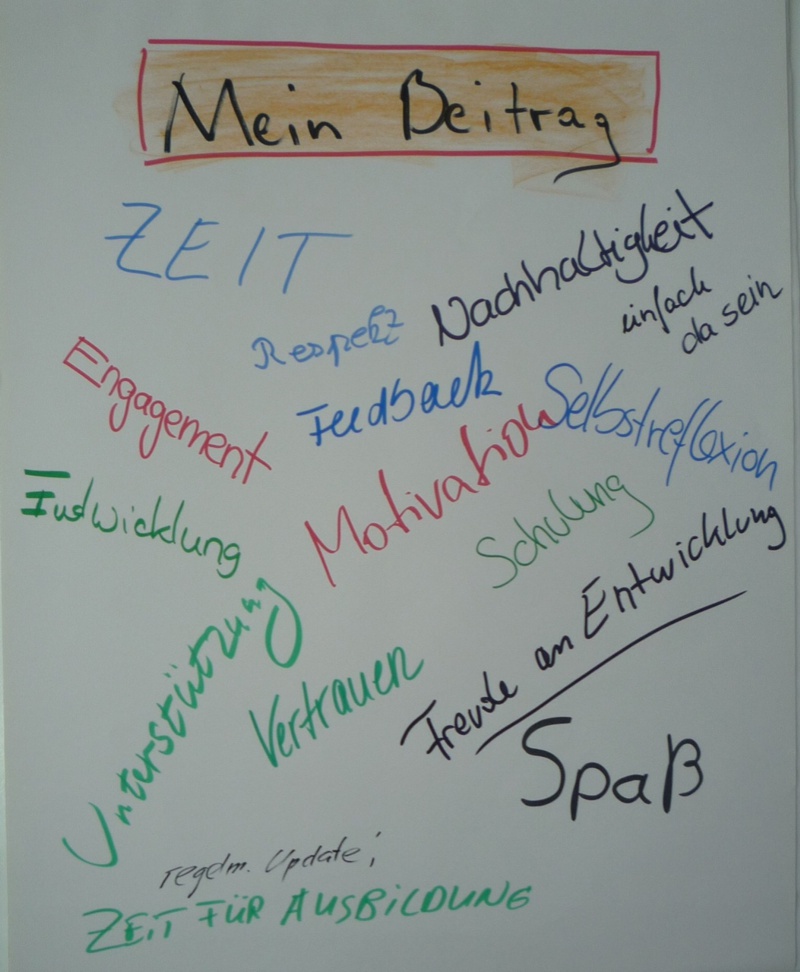 Mein Beitrag
ZEIT
Nachhaltigkeit
einfach
da sein
Respekt
Engagement
Feedback
Selbstreflexion
Motivation
Entwicklung
Schulung
Unterstützung
Vertrauen
Freude an Entwicklung
Spaß
regelm. Update;
ZEIT FÜR AUSBILDUNG